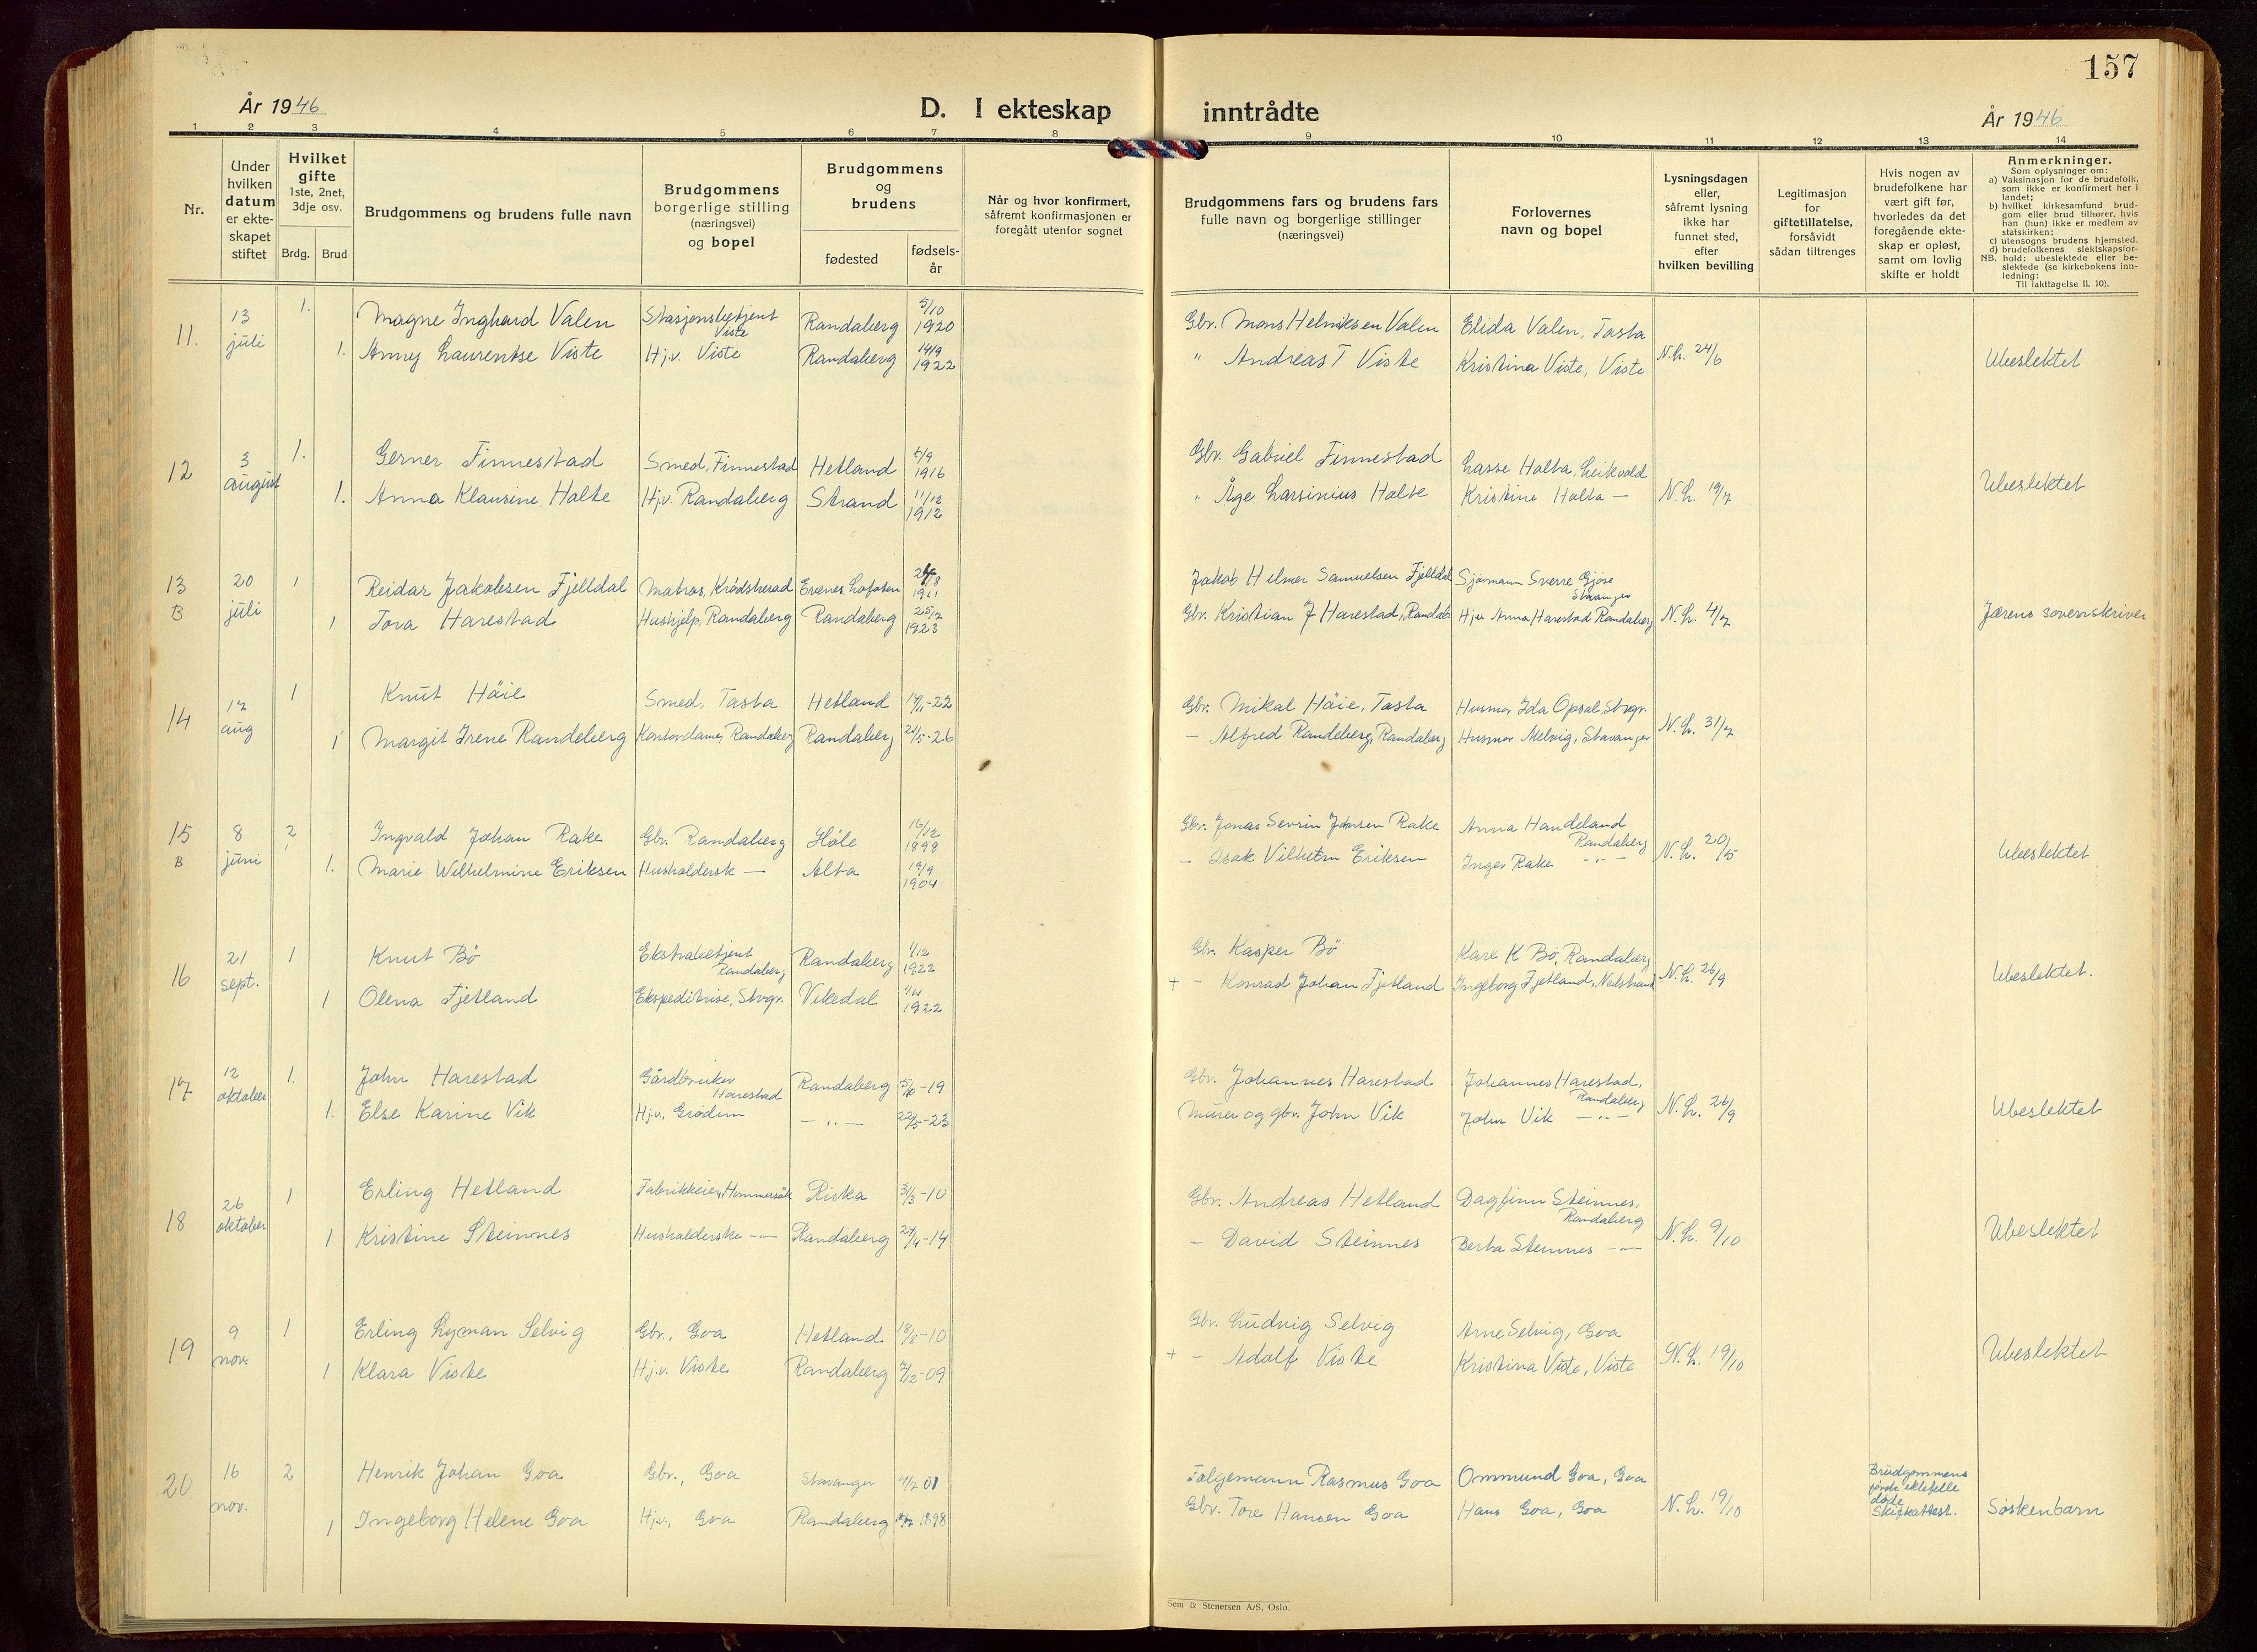 157
År 1946
D. I ekteskap inntrådte
År 1946
1 2 3 4 5 6 7 8 9 10 11 12 13 14
Nr.
Under hvilken datum er ekte-skapet stiftet
Hvilket gifte 1ste, 2net, 3dje osv.
Brdg. Brud
Brudgommens og brudens fulle navn
Brudgommens borgerlige stilling (næringsvei) og bopel
Brudgommens og brudens
fødested
fødsels-år
Når og hvor konfirmert, såfremt konfirmasjonen er foregått utenfor sognet
Brudgommens fars og brudens fars fulle navn og borgerlige stillinger (næringsvei)
Forlovernes navn og bopel
Lysningsdagen eller, såfremt lysning ikke har funnet sted, efter hvilken bevilling
Legitimasjon for giftetillatelse, forsåvidt sådan tiltrenges
Hvis nogen av brudefolkene har vært gift før, hvorledes da det foregående ekte-skap er opløst, samt om lovlig skifte er holdt
Anmerkninger.
Som oplysninger om:
a) Vaksinasjon for de brudefolk, som ikke er konfirmert her i landet;
b) hvilket kirkesamfund brud-gom eller brud tilhører, hvis han (hun) ikke er medlem av statskirken;
c) utensogns brudens hjemsted.
d) brudefolkenes slektskapsfor-hold: ubeslektede eller be-slektede (se kirkebokens inn-ledning:
NB.
Til iakttagelse II. 10).
11. 13 juli 1. Magne Inghard Valen Stasjonsbetjent Viste Randaberg 5/10 1920 Gbr. Mons Helmiksen Valen Elida Valen, Tasta
1. Anny Laurentse Viste Hj.v. Viste Randaberg 14/9 1922 " Andreas T Viste Kristina Viste, Viste N.L. 24/6 Ubeslektet
12 3 august 1. Gerner Finnestad Smed, Finnestad Hetland 1916 Gbr. Gabriel Finnestad Lasse Halta, Leikvold
1. Anna Klausine Halte Hj.v. Randaberg Strand 11/12 1912 " Åge Larsinius Halte Kristine Halta — N.L. 19/7 Ubeslektet
13 B 20 juli 1 Reidar Jakobsen Fjelldal Matros, Krødsherad Evenes Lofoten Jakob Hilmer Samuelsen Fjelldal Sjømann Sverre Gjøse Stavanger
1 Tova Harestad Hushjelp, Randaberg Randaberg 25/7 1923 Gbr. Kristian J Harestad, Randab. Hjv Anna Harestad Randaberg N.L. 4/7 Jærens sorenskriver
14 17 aug 1 Knut Häie Smed, Tasta Hetland -22 Gbr. Mikal Häie, Tasta Husmor Ida Opsal, Stvgr.
1 Margit Irene Randeberg Kontordame, Randaberg Randaberg 21/5-26 — Alfred Randeberg, Randaberg Husmor Melvig, Stavanger N.L. 31/7
15 B 8 juni 2 Ingvald Johan Rake Gbr. Randaberg Høle 16/12 1898 Gbr. Jonas Sevrin Jonsen Rake Anna Handeland Randaberg
1. Marie Wilhelmine Eriksen Husholdersk — Alta 19/9 1904 — Isak Vilhelm Eriksen Inger Rake —"— N.L. 20/5 Ubeslektet
16 21 sept. 1 Knut Bö Ekstrabetjent Randaberg Randaberg 1/12 1922 Gbr. Kasper Bö Kare K Bö, Randaberg
1 Olena Fjetland Ekspeditrise, Stvgr. Vikedal 1922 + — Konrad Johan Fjetland Ingeborg Fjetland, Nedstrand N.L. 26/9 Ubeslektet.
17 12 oktober 1. John Harestad Gårdbruker Harestad Randaberg -19 Gbr. Johannes Harestad Johannes Harestad, Randaberg
1. Else Karine Vik Hj.v. Grødem —"— 22/5-23 Murer og gbr. John Vik John Vik —"— N.L. 26/9 Ubeslektet
18 26 oktober 1 Erling Hetland Fabrikkeier, Hommersåk Riska 31/3-10 Gbr. Andreas Hetland Dagfinn Steinnes, Randaberg
1 Kristine Steinnes Husholderske —"— Randaberg 24/4-14 — David Steinnes Berta Steinnes —"— N.L. 9/10 Ubeslektet
19 9 nov. 1 Erling Lyman Selvig Gbr., Goa Hetland 18/8-10 Gbr. Ludvig Selvig Arne Selvig, Goa
1 Klara Viste Hj.v. Viste Randaberg 2/12-09 + — Adolf Viste Kristina Viste, Viste N.L. 19/10 Ubeslektet
20 16 nov. 2 Henrik Johan Goa Gbr., Goa Stavanger 4/7 01 Følgemann Rasmus Goa Ommund Goa, Goa Brudgommens første ektefelle døde Skifteattest.
1 Ingeborg Helene Goa Hj.v., Goa Randaberg 1898 Gbr. Tore Hansen Goa Hans Goa, Goa N.L. 19/10 Søskenbarn
Sem & Stenersen A/S, Oslo.